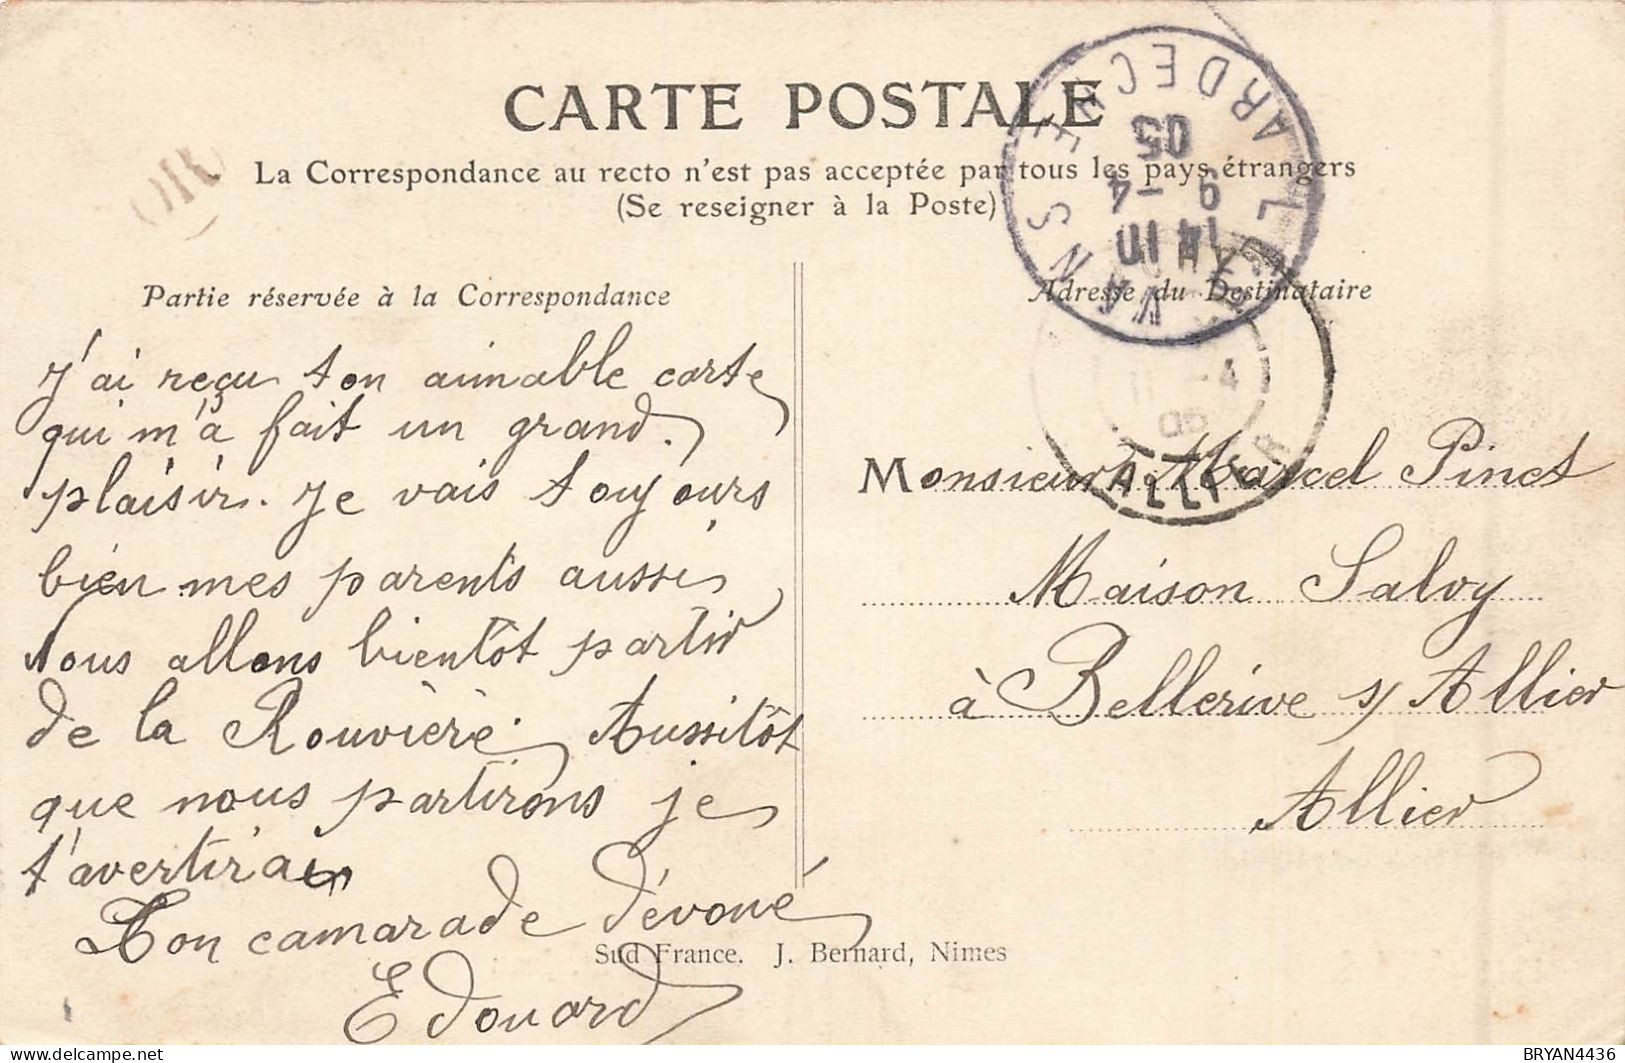 CARTE POSTALE
La Correspondance au recto n'est pas acceptée par tous les pays étrangers
(Se reseigner à la Poste)
OR
LES VANS
ARDECHE
14 10
9 -4
05
Partie réservée à la Correspondance
Adresse du Destinataire
-4
05
ALLIER
J'ai reçu ton aimable carte
qui m'a fait un grand
plaisir. Je vais toujours
bien mes parents aussi
Nous allons bientôt partir
de la Rouvière. Aussitôt
que nous partirons je
t'avertirai
Ton camarade dévoué
Edouard
Monsieur Marcel Pinet
Maison Salvy
à Bellerive s/ Allier
Allier
Sud France. J. Bernard, Nimes
BRYAN4436
delcampe.net